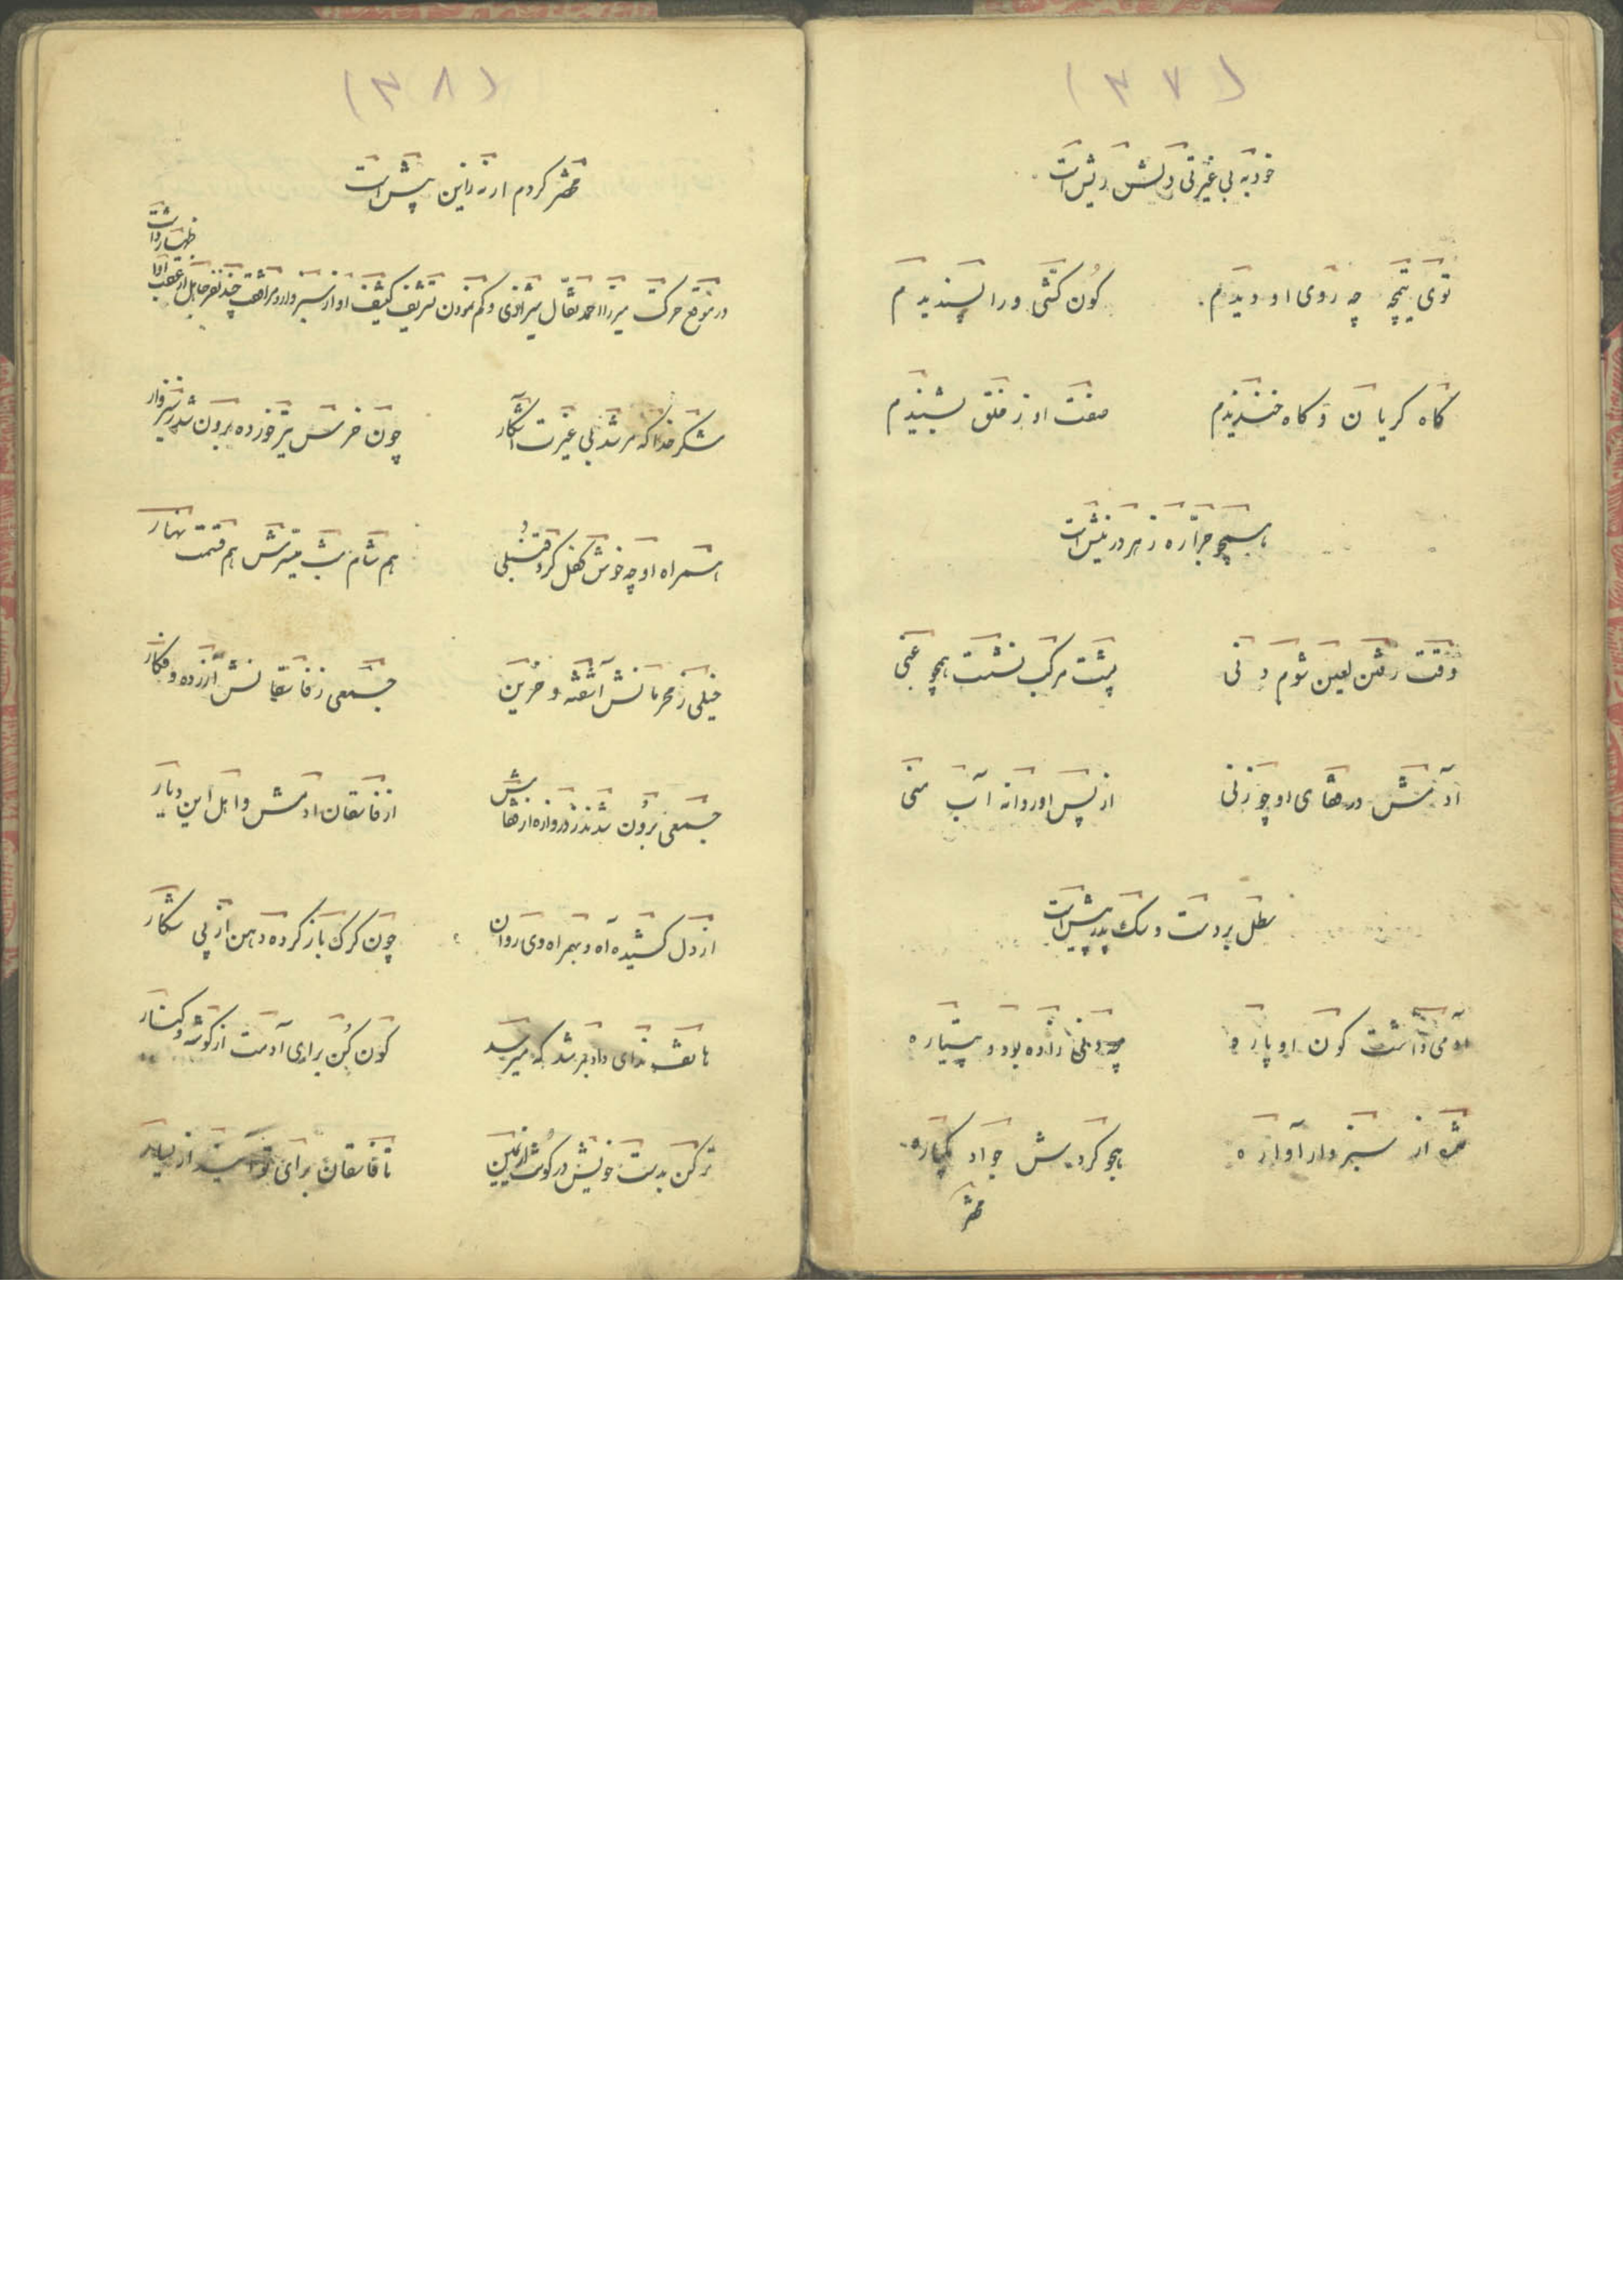 (۳۷)
خود به بی غیرتی دلش ریش است
توی تیمچه چه روی او دیدم
کون کشی ورا پسندیدم
گاه گریان و گاه خندیدم
صفت او ز خلق بشنیدم
همچو جراره زهر در نیش است
وقت رفتن لعین شوم دنی
پشت مرکب نشست همچو غنی
آدمش در قفای او چو زنی
از پس او روانه آب منی
سطل بر دست و سگ به پیش است
آدمی داشت کون او پاره
چه دنی زاده بود و پتیاره
شد از سبزوار آواره
هجو کردیش جواد یکباره
(۳۸)
کردم ار نه زاین پیش است
در موقع حرکت میرزا احمد بقال شیرازی و کم نمودن تشریف کثیف او از سبزوار و مرافقت چند نفر جاهل از عقب او اظهار داشت
شکر خدا که مرشد بی غیرت آشکار
چون خرس تیر خورده برون شد ز سبزوار
همراه او چه خوش کفل گرد قنبلی
هم شام شب میسرش هم قسمت نهار
خیلی ز محرمانش آشفته و حزین
جمعی ز فاسقانش آزرده و فکار
جمعی برون شدند ز دروازه از قفاش
از فاسقان آدمش و اهل این دیار
از دل کشیده آه و بهمراه وی روان
چون گرگ باز کرده دهن از پی شکار
هاتف ندای داد به مرشد که میرسد
کون کن برای آدمت از گوشه و کنار
تر کن بدست خویش در کون
تا فاسقان برای تو آیند از یسار